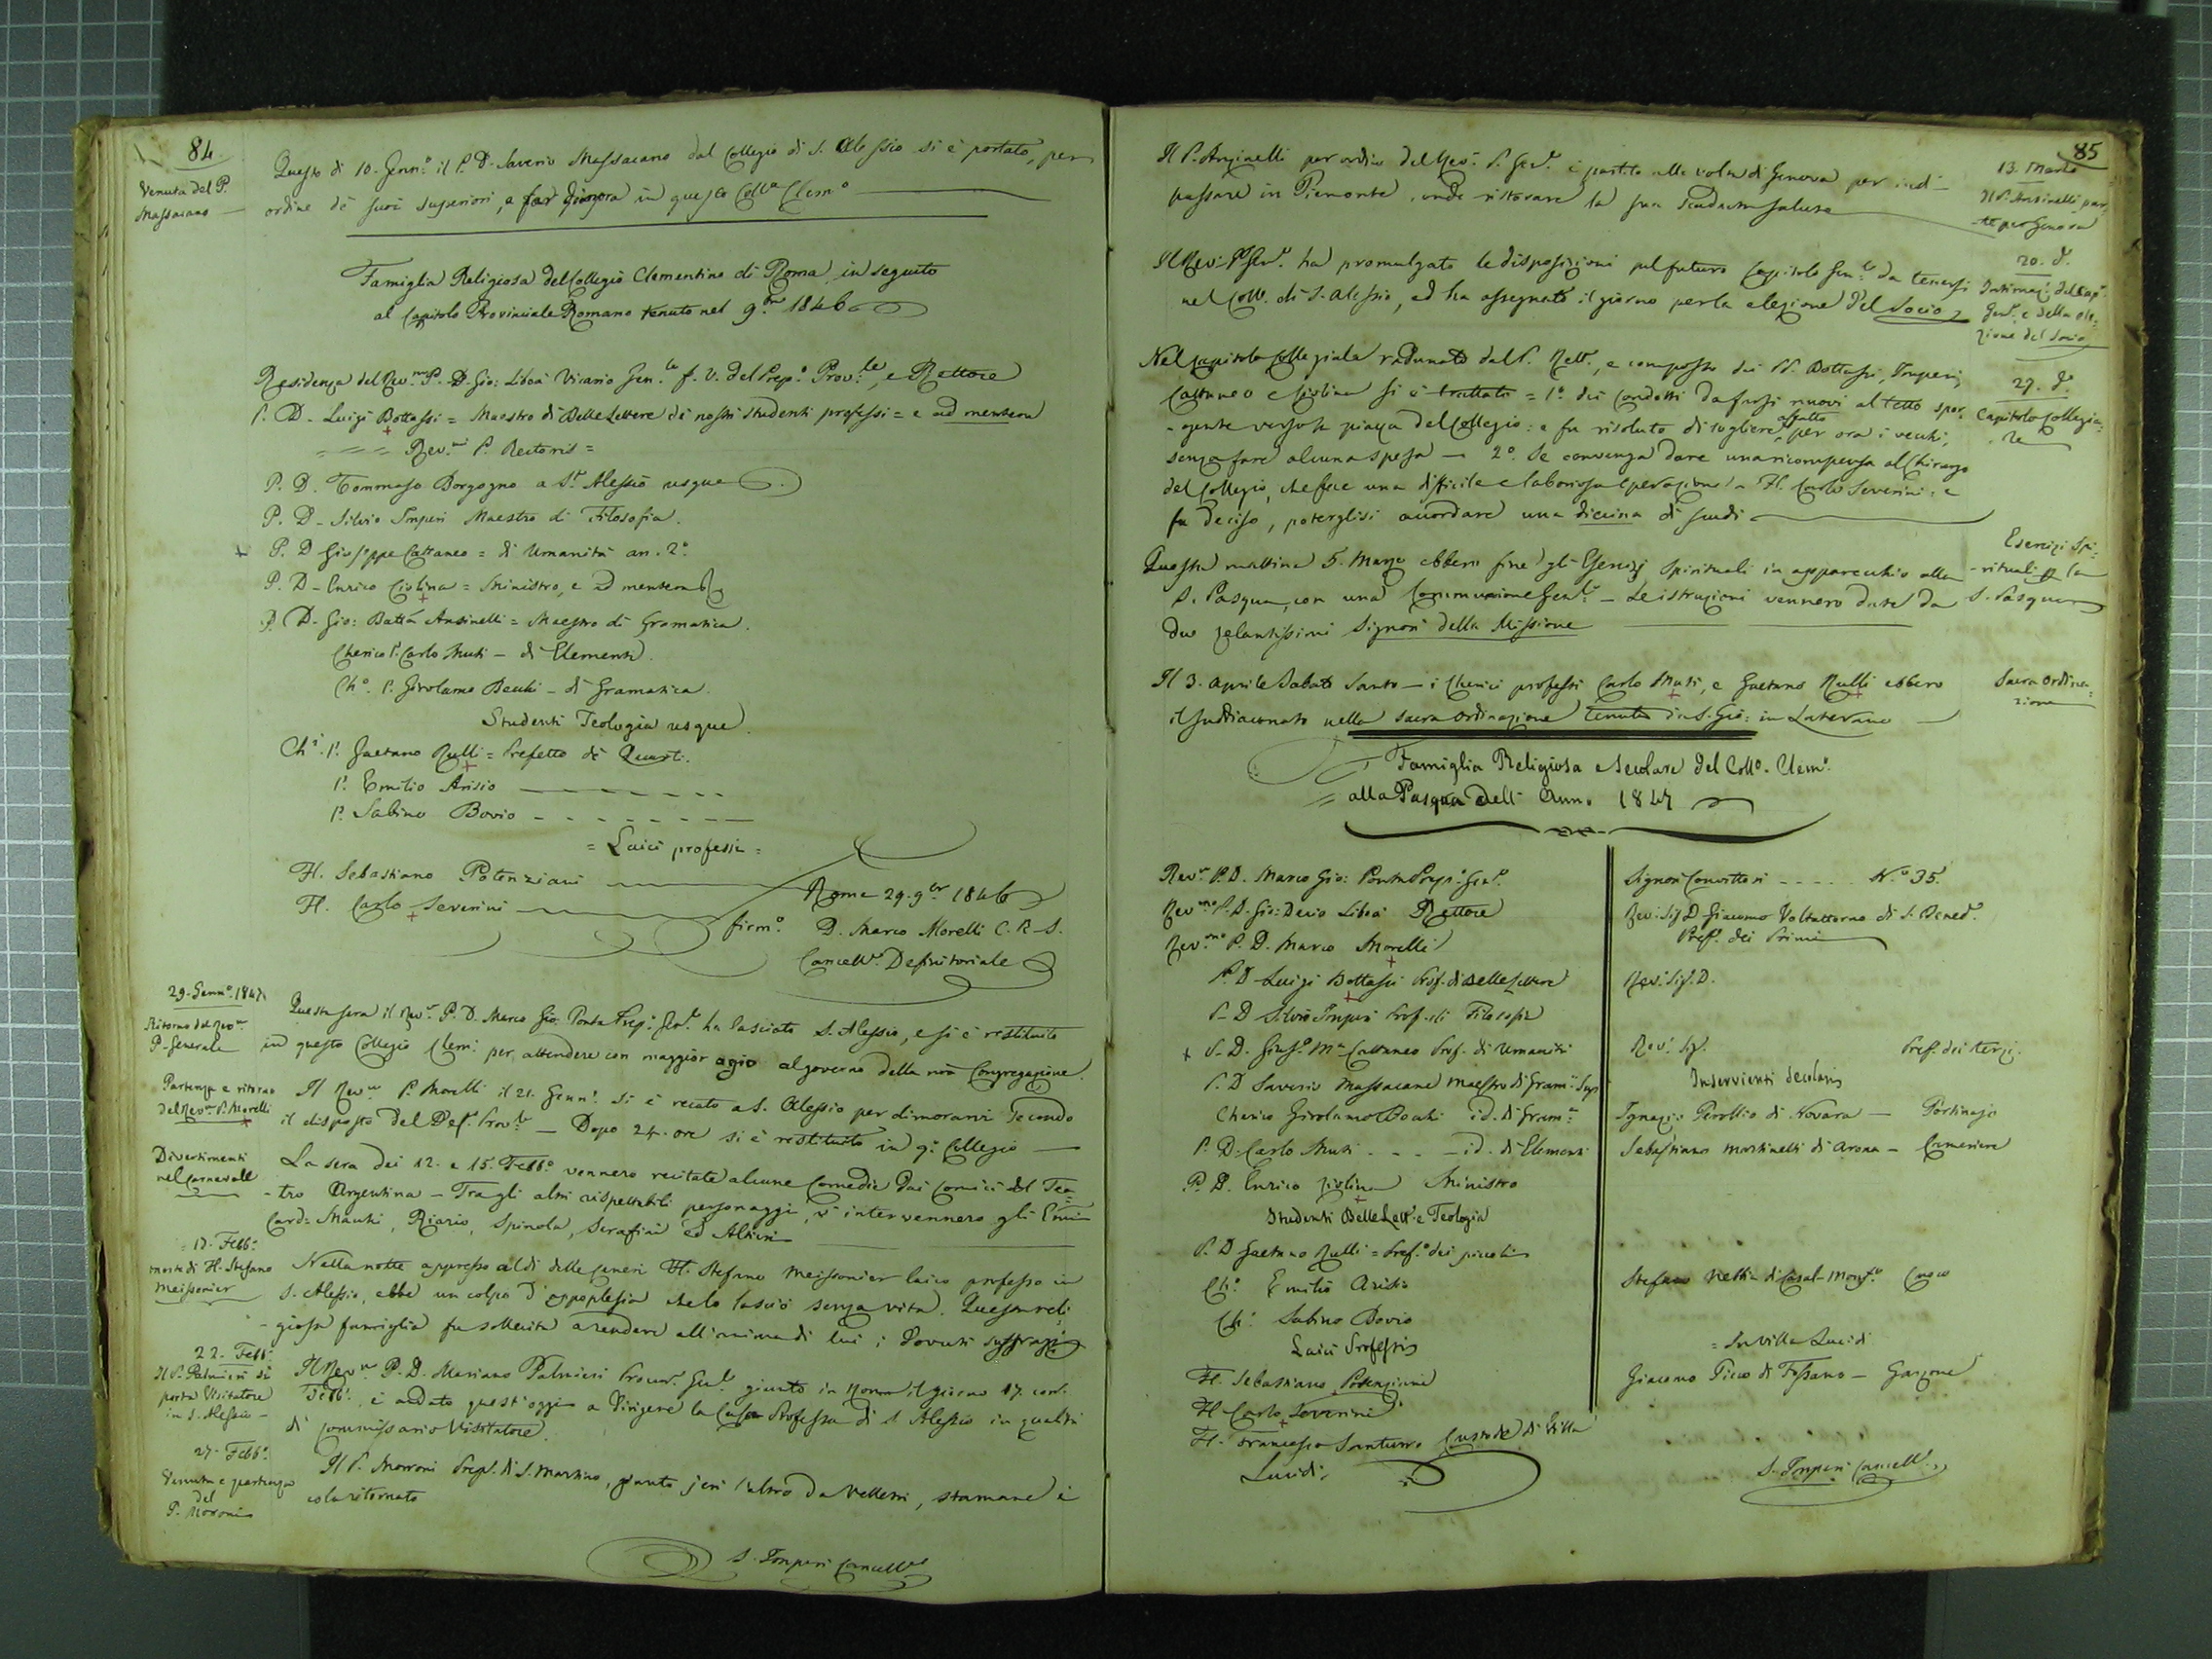 84
Venuta del P.
Massaiano
Questo dì 10. Genn.º il P. D. Saverio Massaiano dal Collegio di S. Alessio si è portato, per
ordine de' suoi superiori, a far dimora in questo Coll.º Clem.º
Famiglia Religiosa del Collegio Clementino di Roma, in seguito
al Capitolo Provinciale Romano tenuto nel 9.bre 1846
Residenza del Rev.mo P. D. Gio: Libois Vicario Gen.le f. V. del Prep.º Prov.le, e Rettore
P. D. Luigi Bottassi = Maestro di Belle Lettere de' nostri studenti professi = e ad mentem
Rev.mi P. Rectoris =
P. D. Tommaso Borgogno a St. Alessio usque
P. D. Silvio Imperi Maestro di Filosofia.
P. D. Giuseppe Cattaneo = di Umanità an. 2º.
P. D. Enrico Ciolina = Ministro, e ad mentem
P. D. Gio: Batta Ansinelli = Maestro di Gramatica.
Cherico P. Carlo Muti – di Elementi.
Ch.º P. Girolamo Bechi – di Gramatica.
Studenti Teologia usque
Ch.i P. Gaetano Rulli = Prefetto de' Quarti.
P. Emilio Arisio
P. Sabino Bovio
= Laici professi =
H. Sebastiano Potenziani
H. Carlo Severini
Roma 29. 9.br 1846
firm.º D. Marco Morelli C. R. S.
Cancell.e Definitoriale
29. Genn.º 1847
Ritorno del Rev.mo
P. Generale
Questa sera il Rev.mo P. D. Marco Gio. Ponta Prep. Gen.le ha lasciato S. Alessio, e si è restituito
in questo Collegio Clem: per attendere con maggior agio al governo della nra Congregazione.
Partenza e ritorno
del Rev.mo P. Morelli
Il Rev.mo P. Morelli il 21. Genn.º si è recato a S. Alessio per dimorarvi secondo
il disposto del Def. Prov.le – Dopo 24. ore si è restituito in q.º Collegio
Divertimenti
nel Carnevale
La sera dei 12. e 15. Febb.º vennero recitate alcune Comedie dai Comici del Tea-
-tro Argentina – Tra gli altri rispettabili personaggi, v'intervennero gli Emi
Card: Mauchi, Riario, Spinola, Serafini ed Altieri
Febb.º
morte di H. Stefano
Meissonier
Nella notte appresso al dì delle Ceneri H. Stefano Meissonier laico professo in
S. Alessio, ebbe un colpo d'appoplesia che lo lasciò senza vita. Questa reli-
-giosa famiglia fu sollecita a rendere all'anima di lui i dovuti suffragi
22. Febb.
Il P. Palmieri si
porta Visitatore
in S. Alessio –
Il Rev.mo P. D. Mariano Palmieri Procur. Gen.le giunto in Roma il giorno 17. corr.
Febb.º, è andato quest'oggi a dirigere la Casa Professa di S. Alessio in qualità
di Commissario Visitatore.
27. Febb.º
Venuta e partenza
del
P. Moroni
Il P. Morroni Prep. di S. Martino, giunto jeri l'altro da Velletri, stamane è
colà ritornato
S. Imperi Cancell.e
85
Il P. Anzinelli per ordine del Rev. P. Gen.le è partito alla volta di Genova per indi
passare in Piemonte, onde ristorare la sua scaduta salute
13. Marzo
Il P. Ansinelli par-
te per Genova
Il Rev. P. Gen.le ha promulgate le disposizioni pel futuro Capitolo Gen.le da tenersi
nel Coll. di S. Alessio, ed ha assegnato il giorno per la elezione del Socio
20. d.º
Intimaz. del Cap.
Gen.e, e della ele-
zione del Socio
Nel capitolo Collegiale radunato dal P. Rett.e, e composto dai PP. Bottassi, Imperi,
Cattaneo e Ciolina si è trattato = 1º. dei condotti da farsi nuovi al tetto spor-
-gente verso la piazza del Collegio: e fu risoluto di togliere affatto per ora i vecchi,
senza fare alcuna spesa – 2º. Se convenga dare una ricompensa al Chirurgo
del Collegio, che fece una difficile e laboriosa operazione a H. Carlo Severini: e
fu deciso, poterglisi accordare una diecina di scudi
27. d.º
Capitolo Collegia-
le
Questa mattina 5. Marzo ebbero fine gli Esercizj Spirituali in apparecchio alla
S. Pasqua, con una Comunione Gen.le – Le istruzioni vennero date da
due zelantissimi Signori della Missione
Esercizi Spi-
-rituali p. la
S. Pasqua
Il 3. Aprile Sabato Santo – i Cherici professi Carlo Muti, e Gaetano Rulli ebbero
il Suddiaconato nella sacra ordinazione tenuta in S. Gio: in Laterano
Sacra ordina-
zione
Famiglia Religiosa e Secolare del Coll.º Clem.º
= alla Pasqua dell' Anno 1847
Rev.mo P. D. Marco Gio: Ponta Prep.º Gen.le
Rev.mo P. D. Gio: Decio Libois Rettore
Rev.mo P. D. Marco Morelli
P. D. Luigi Bottassi Prof. di Belle Lettere
P. D. Silvio Imperi Prof. di Filosofia
P. D. Gius.e M.a Cattaneo Prof. di Umanità
P. D. Saverio Massaiano Maestro di Gram. Sup.
Cherico Girolamo Bechi id. di Gram.a
P. D. Carlo Muti - - - id. di Elementi
P. D. Enrico Ciolina Ministro
Studenti Belle Lett. e Teologia
P. D. Gaetano Rulli = Pref.º dei piccoli
Ch.º Emilio Arisio
Ch.º Sabino Bovio
Laici Professi
H. Sebastiano Potenziani
H. Carlo Severini
H. Francesco Santurro Custode di Villa
Lucidi
Signori Convittori - - - - - N.º 35.
Rev. Sig. D. Giacomo Voltattorno di S. Bened.º
Pref.º dei Primi
Rev. Sig. D.
Rev. Sig. Pref. dei terzi.
Inservienti Secolari
Ignazio Perollio di Novara – Portinajo
Sebastiano Martinelli di Arona – Cameriere
Stefano Netti di Casal-Monf.to Cuoco
= In Villa Lucidi
Giacomo Pico di Fossano – Garzone
S. Imperi Cancell.e